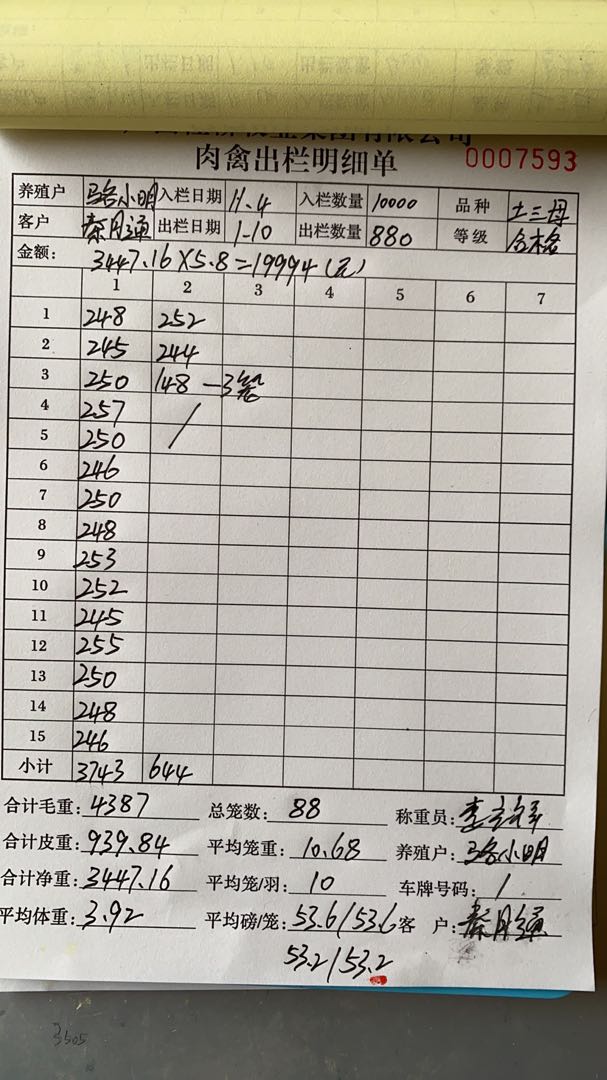 肉禽出栏明细单 0007593
养殖户 骆小明 入栏日期 11.4 入栏数量 10000 品种 土三母
客户 秦月通 出栏日期 1-10 出栏数量 880 等级 合格
金额: 3447.16×5.8=19994(元)
1 2 3 4 5 6 7
1 248 252
2 245 244
3 250 148 —3笼
4 257 /
5 250
6 246
7 250
8 248
9 253
10 252
11 245
12 255
13 250
14 248
15 246
小计 3743 644
合计毛重: 4387 总笼数: 88 称重员:
合计皮重: 939.84 平均笼重: 10.68 养殖户: 骆小明
合计净重: 3447.16 平均笼/羽: 10 车牌号码: /
平均体重: 3.92 平均磅/笼: 53.6/53.6 客户: 秦月通
53.2/53.2
3505